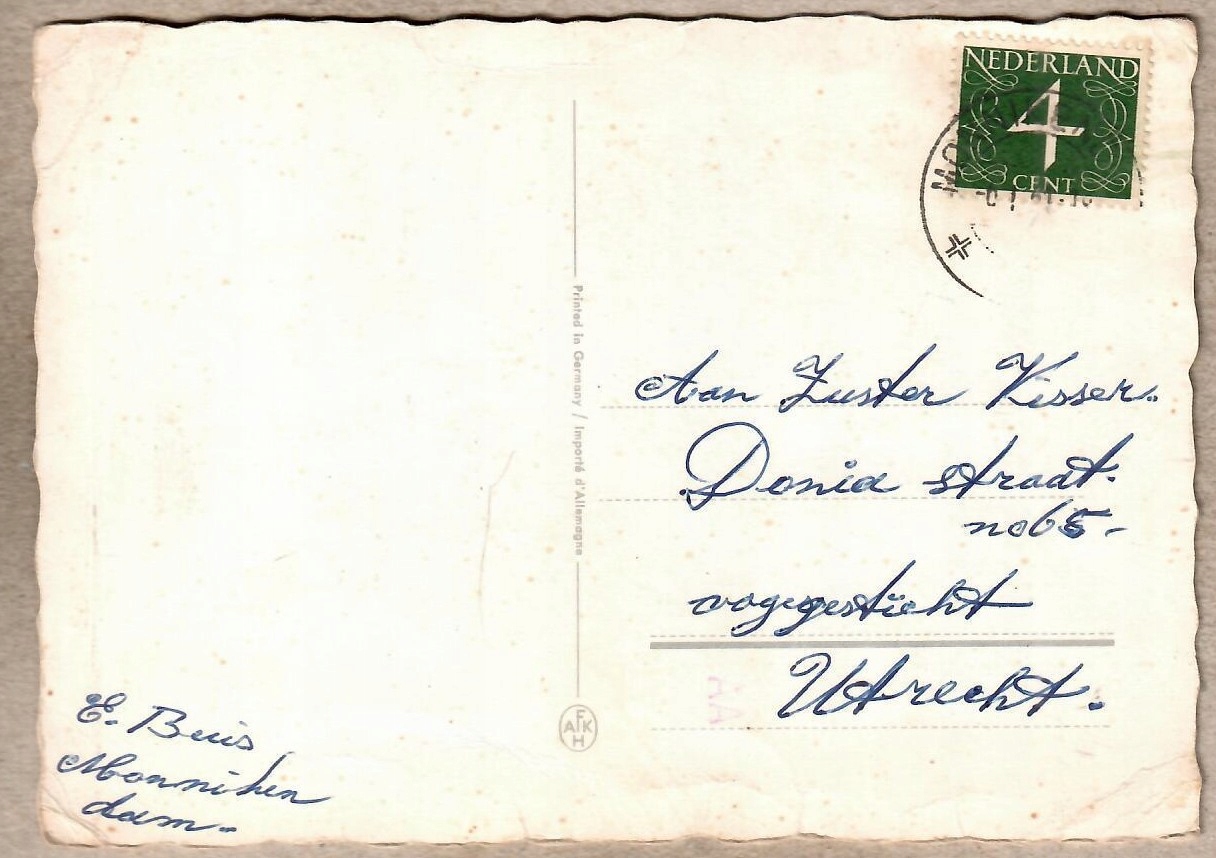 NEDERLAND
4
CENT
Printed in Germany / Importé d'Allemagne
Aan Zuster Visser.
Donia straat.
no 65-
Utrecht.
AFKH
E. Buis
Monniken
dam.-